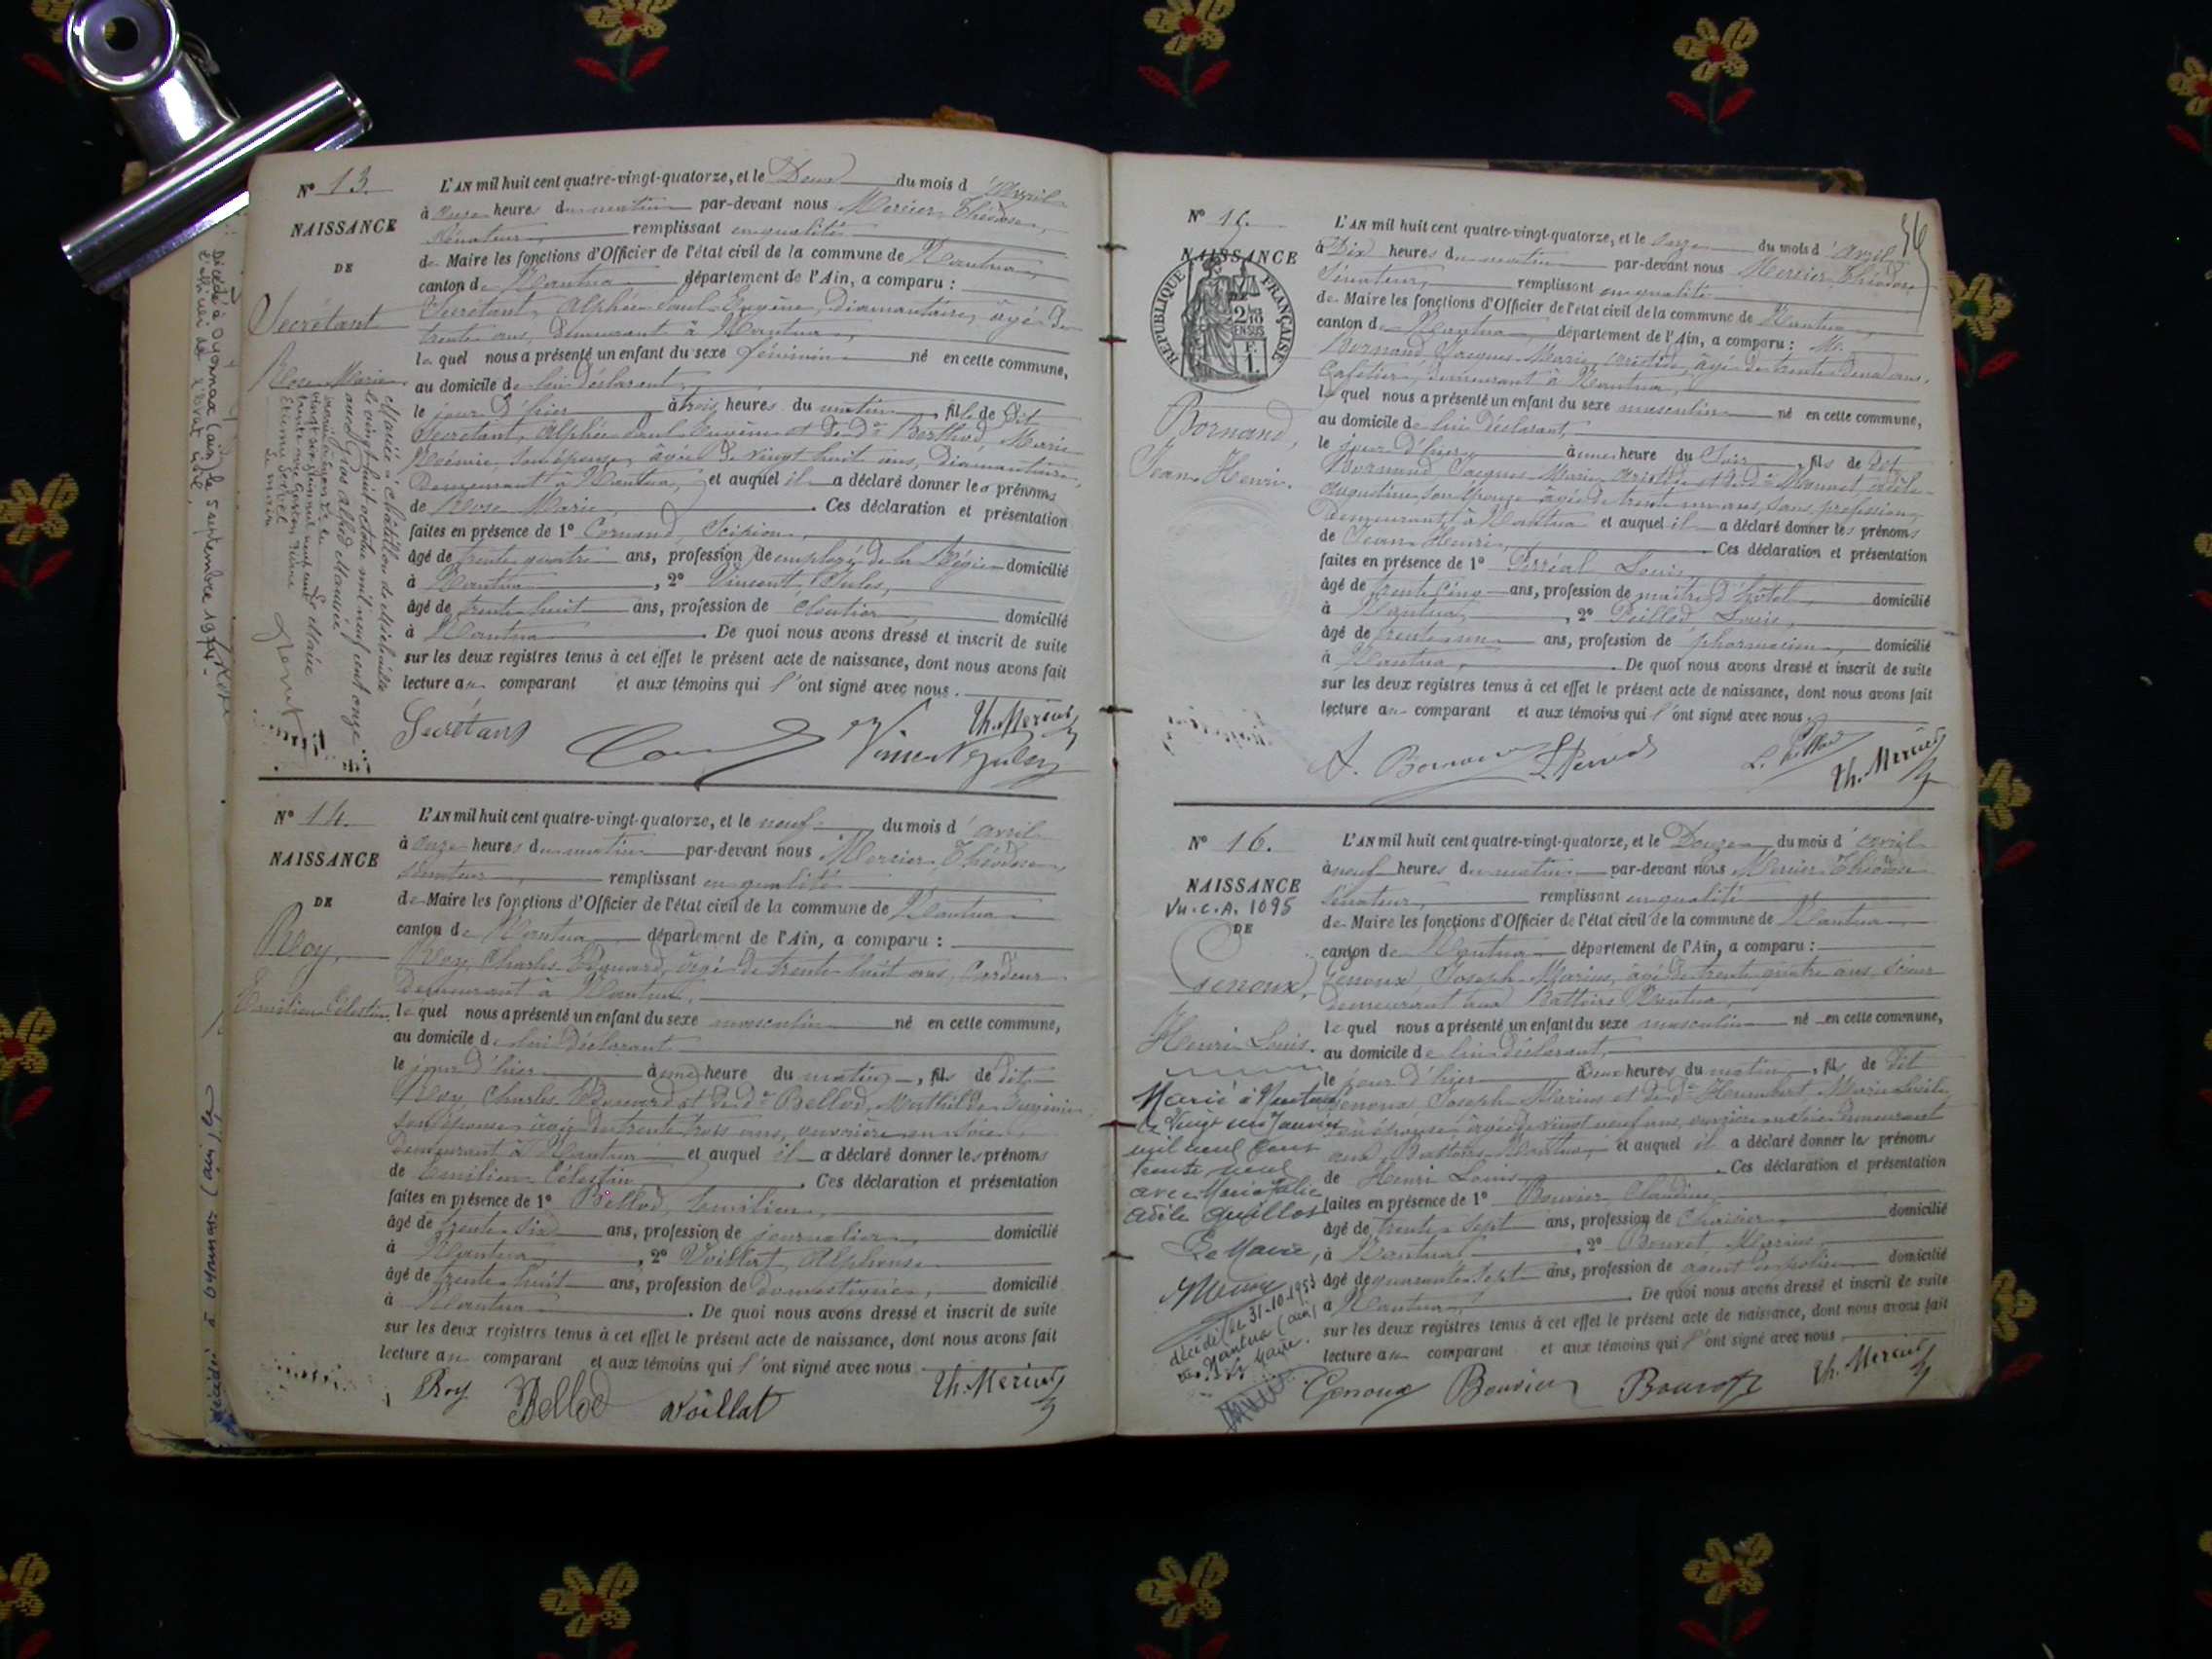 N° 13.
NAISSANCE
DE
Secrétant
Rose Marie
L'AN mil huit cent quatre-vingt-quatorze, et le Deux du mois d'avril
à onze heures du matin par-devant nous Mercier, Théodose,
Sénateur, remplissant en qualité
de Maire les fonctions d'Officier de l'état civil de la commune de Nantua,
canton de Nantua département de l'Ain, a comparu :
Secrétant, Alphée Paul Eugène, Diamantaire, âgé de
trente ans, demeurant à Nantua,
lequel nous a présenté un enfant du sexe féminin né en cette commune,
au domicile de lui déclarant,
le jour d'hier à trois heures du matin, fille de dit
Secrétant, Alphée Paul Eugène et de de Berthod, Marie
son épouse, âgée de vingt huit ans, Diamantaire,
demeurant à Nantua, et auquel il a déclaré donner les prénoms
de Rose Marie, Ces déclaration et présentation
faites en présence de 1° Cornand, Scipion,
âgé de trente quatre ans, profession de employé de la Régie domicilié
à Nantua, 2° Vincent, Jules,
âgé de trente huit ans, profession de cloutier, domicilié
à Nantua. De quoi nous avons dressé et inscrit de suite
sur les deux registres tenus à cet effet le présent acte de naissance, dont nous avons fait
lecture au comparant et aux témoins qui l'ont signé avec nous.
Secrétant Vincent Jules Th. Mercier
Mariée à Châtillon de Michaille
le vingt huit octobre mil neuf cent onze
avec Gras Alfred Maurice.
Le Maire
Décédée à Oyonnax (Ain) le 5 septembre 1974.
N° 14.
NAISSANCE
DE
Roy,
Emilien Célestin.
L'AN mil huit cent quatre-vingt-quatorze, et le neuf du mois d'avril
à onze heures du matin par-devant nous Mercier, Théodose,
Sénateur, remplissant en qualité
de Maire les fonctions d'Officier de l'état civil de la commune de Nantua
canton de Nantua département de l'Ain, a comparu :
Roy, Charles Edouard, âgé de trente huit ans, Cardeur
demeurant à Nantua,
lequel nous a présenté un enfant du sexe masculin né en cette commune,
au domicile de lui déclarant
le jour d'hier à une heure du matin, fils de dit
Roy, Charles Edouard et de de Bellod, Mathilde Eugénie
son épouse âgée de trente trois ans, ouvrière en soie,
demeurant à Nantua et auquel il a déclaré donner les prénoms
de Emilien Célestin, Ces déclaration et présentation
faites en présence de 1° Bellod, Emilien,
âgé de trente six ans, profession de journalier, domicilié
à Nantua, 2° Voillat, Alphonse
âgé de trente huit ans, profession de domestique, domicilié
à Nantua. De quoi nous avons dressé et inscrit de suite
sur les deux registres tenus à cet effet le présent acte de naissance, dont nous avons fait
lecture au comparant et aux témoins qui l'ont signé avec nous
Roy Bellod Voillat Th. Mercier
décédé à Oyonnax (Ain) le
N° 15.
NAISSANCE
RÉPUBLIQUE FRANÇAISE
2/10 EN SUS
F. 1.
Bornand,
Jean Henri.
L'AN mil huit cent quatre-vingt-quatorze, et le onze du mois d'avril
à Dix heures du matin par-devant nous Mercier, Théodose
Sénateur, remplissant en qualité
de Maire les fonctions d'Officier de l'état civil de la commune de Nantua,
canton de Nantua, département de l'Ain, a comparu : Mr.
Bornand, Jacques Marie Aristide, âgé de trente deux ans,
Cafetier, demeurant à Nantua,
lequel nous a présenté un enfant du sexe masculin né en cette commune,
au domicile de lui déclarant,
le jour d'hier à une heure du Soir, fils de dit
Bornand Jacques Marie Aristide et de de
Augustine, son épouse âgée de trente un ans, sans profession,
demeurant à Nantua et auquel il a déclaré donner les prénoms
de Jean Henri, Ces déclaration et présentation
faites en présence de 1° Perréal Louis,
âgé de trente cinq ans, profession de maître d'hôtel, domicilié
à Nantua, 2° Peillod, Louis,
âgé de trente un ans, profession de pharmacien, domicilié
à Nantua, De quoi nous avons dressé et inscrit de suite
sur les deux registres tenus à cet effet le présent acte de naissance, dont nous avons fait
lecture au comparant et aux témoins qui l'ont signé avec nous.
A. Bornand L. Peillod Th. Mercier
N° 16.
NAISSANCE
Vu. C.A. 1095
DE
Genoux,
Henri Louis.
L'AN mil huit cent quatre-vingt-quatorze, et le Douze du mois d'avril
à neuf heures du matin par-devant nous Mercier Théodose
Sénateur, remplissant en qualité
de Maire les fonctions d'Officier de l'état civil de la commune de Nantua
canton de Nantua département de l'Ain, a comparu :
Genoux, Joseph Marius, âgé de trente quatre ans, scieur
demeurant aux Battoirs Nantua,
lequel nous a présenté un enfant du sexe masculin né en cette commune,
au domicile de lui déclarant,
le jour d'hier à deux heures du matin, fils de dit
Genoux, Joseph Marius et de de Humbert Marie
son épouse âgée de vingt neuf ans, ouvrière en soie demeurant
aux Battoirs Nantua, et auquel il a déclaré donner les prénoms
de Henri Louis Ces déclaration et présentation
faites en présence de 1° Bouvier Claudius,
âgé de trente sept ans, profession de Chaisier, domicilié
à Nantua, 2° Bouvot, Marius,
âgé de quarante sept ans, profession de agent de police domicilié
à Nantua, De quoi nous avons dressé et inscrit de suite
sur les deux registres tenus à cet effet le présent acte de naissance, dont nous avons fait
lecture au comparant et aux témoins qui l'ont signé avec nous.
Genoux Bouvier Bouvot Th. Mercier
Marié à Nantua
le vingt un Janvier
mil neuf cent
trente neuf
avec Marie Julie
Adèle Guillot
Le Maire,
décédé le 31-10-1953
à Nantua (Ain)
Le Maire.